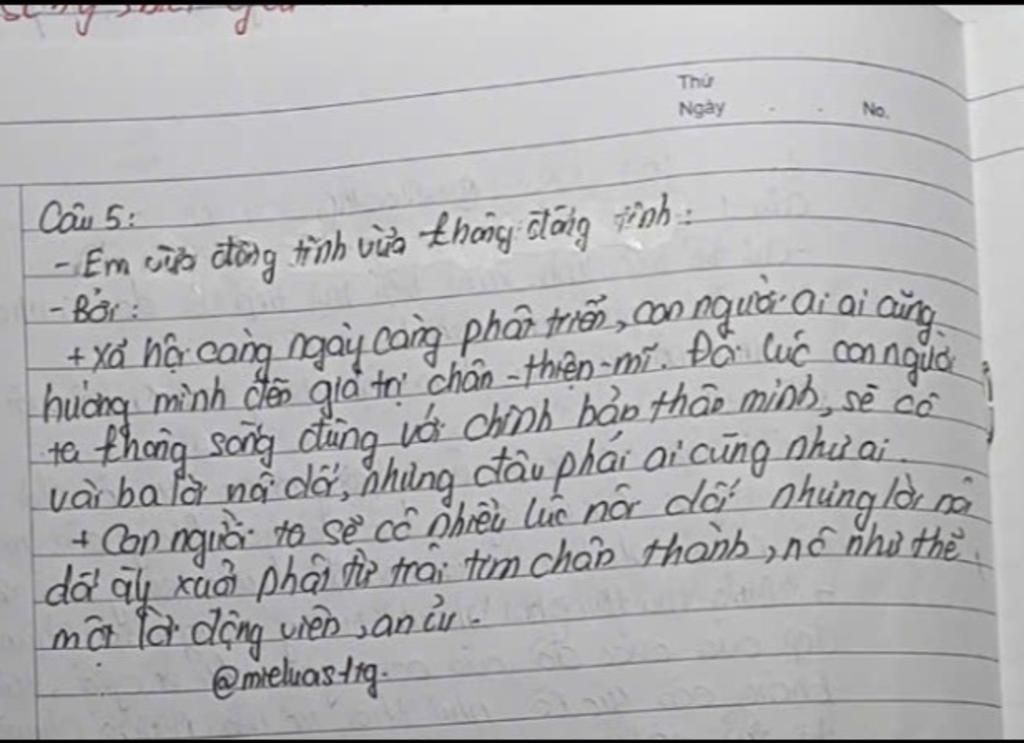 Thứ
Ngày . . No.
Câu 5:
- Em vừa đồng tình vừa không đồng tình:
- Bởi:
+ Xã hội càng ngày càng phát triển, con người ai ai cũng
hướng mình đến giá trị chân - thiện - mĩ. Đôi lúc con người
ta không sống đúng với chính bản thân mình, sẽ có
vài ba lời nói dối, nhưng đâu phải ai cũng như ai.
+ Con người ta sẽ có nhiều lúc nói dối nhưng lời nói
dối ấy xuất phát từ trái tim chân thành, nó như thể
một lời động viên, an ủi.